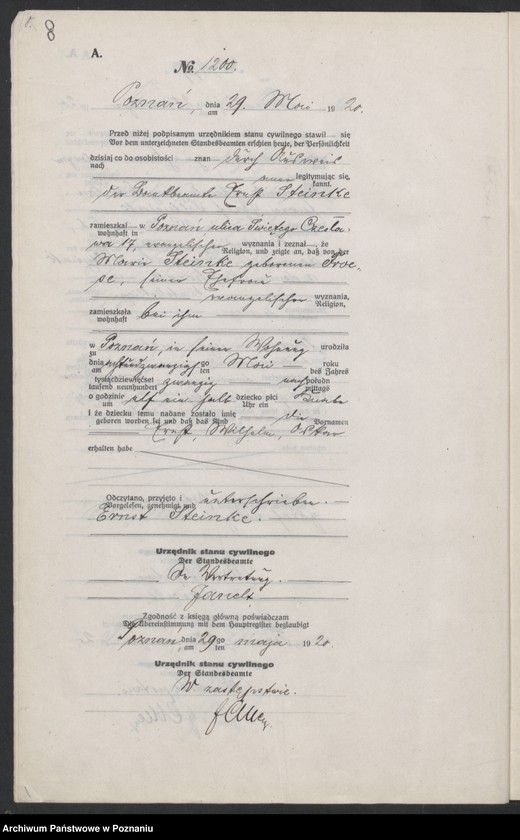 8
A.
№ 1200.
Poznań, dnia 29. Mai 1920.
am
Przed niżej podpisanym urzędnikiem stanu cywilnego stawił się
Vor dem unterzeichneten Standesbeamten erschien heute, der Persönlichkeit
dzisiaj co do osobistości znan durch Ausweis
nach
legitymując się,
kannt.
der Ernst Steinke
zamieszkał w Poznań ulica Świętego Czesła-
wohnhaft in
wa 17, evangelischer wyznania i zeznał, że
Religion, und zeigte an, daß von der
Marie Steinke geborenen Troe-
se, seiner Ehefrau
evangelischer wyznania,
Religion,
zamieszkała bei ihm
wohnhaft
w Poznań, in seiner Wohnung urodziła
zu
dnia achtundzwanzig go Mai roku
am ten des Jahres
tysiącdziewięćset zwanzig nach południ
tausend neunhundert mittags
o godzinie elf ein halb dziecko płci Knabe
um Uhr ein
i że dziecku temu nadane zostało imię die
geboren worden sei und daß das Kind Vornamen
Ernst, Wilhelm, Oskar
erhalten habe
Odczytano, przyjęto i unterschrieben.
Vorgelesen, genehmigt und
Ernst Steinke.
Urzędnik stanu cywilnego
Der Standesbeamte
In Vertretung.
Zgodność z księgą główną poświadczam
Die Übereinstimmung mit dem Hauptregister beglaubigt
Poznań, dnia 29 go maja 1920.
am ten
Urzędnik stanu cywilnego
Der Standesbeamte
W zastępstwie.
Archiwum Państwowe w Poznaniu